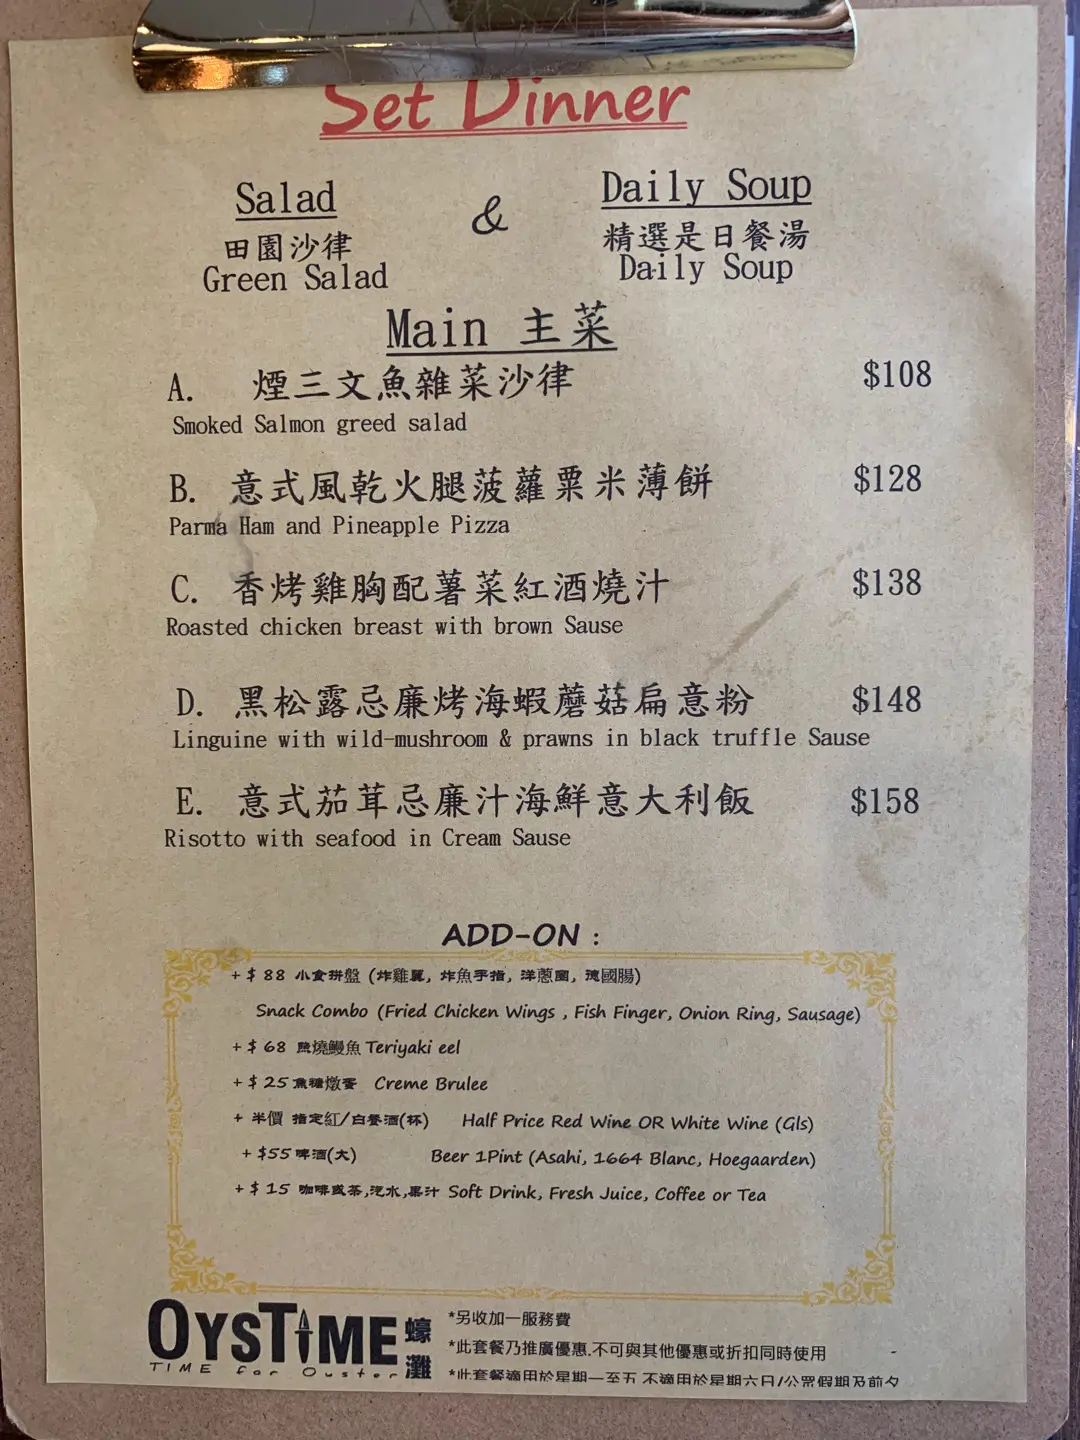 Set Dinner
Salad & Daily Soup
田園沙律 精選是日餐湯
Green Salad Daily Soup
Main 主菜
A. 煙三文魚雜菜沙律 $108
Smoked Salmon greed salad
B. 意式風乾火腿菠蘿粟米薄餅 $128
Parma Ham and Pineapple Pizza
C. 香烤雞胸配薯菜紅酒燒汁 $138
Roasted chicken breast with brown Sause
D. 黑松露忌廉烤海蝦蘑菇扁意粉 $148
Linguine with wild-mushroom & prawns in black truffle Sause
E. 意式茄茸忌廉汁海鮮意大利飯 $158
Risotto with seafood in Cream Sause
ADD-ON :
+ $ 88 小食拼盤 (炸雞翼, 炸魚手指, 洋蔥圈, 德國腸)
Snack Combo (Fried Chicken Wings , Fish Finger, Onion Ring, Sausage)
+ $ 68 照燒鰻魚 Teriyaki eel
+ $ 25 焦糖燉蛋 Creme Brulee
+ 半價 指定紅/白餐酒(杯) Half Price Red Wine OR White Wine (Gls)
+ $55 啤酒(大) Beer 1Pint (Asahi, 1664 Blanc, Hoegaarden)
+ $ 15 咖啡或茶,汽水,果汁 Soft Drink, Fresh Juice, Coffee or Tea
OYSTIME 蠔灘
TIME for Oyster
*另收加一服務費
*此套餐乃推廣優惠.不可與其他優惠或折扣同時使用
*此套餐適用於星期一至五 不適用於星期六日/公眾假期及前夕